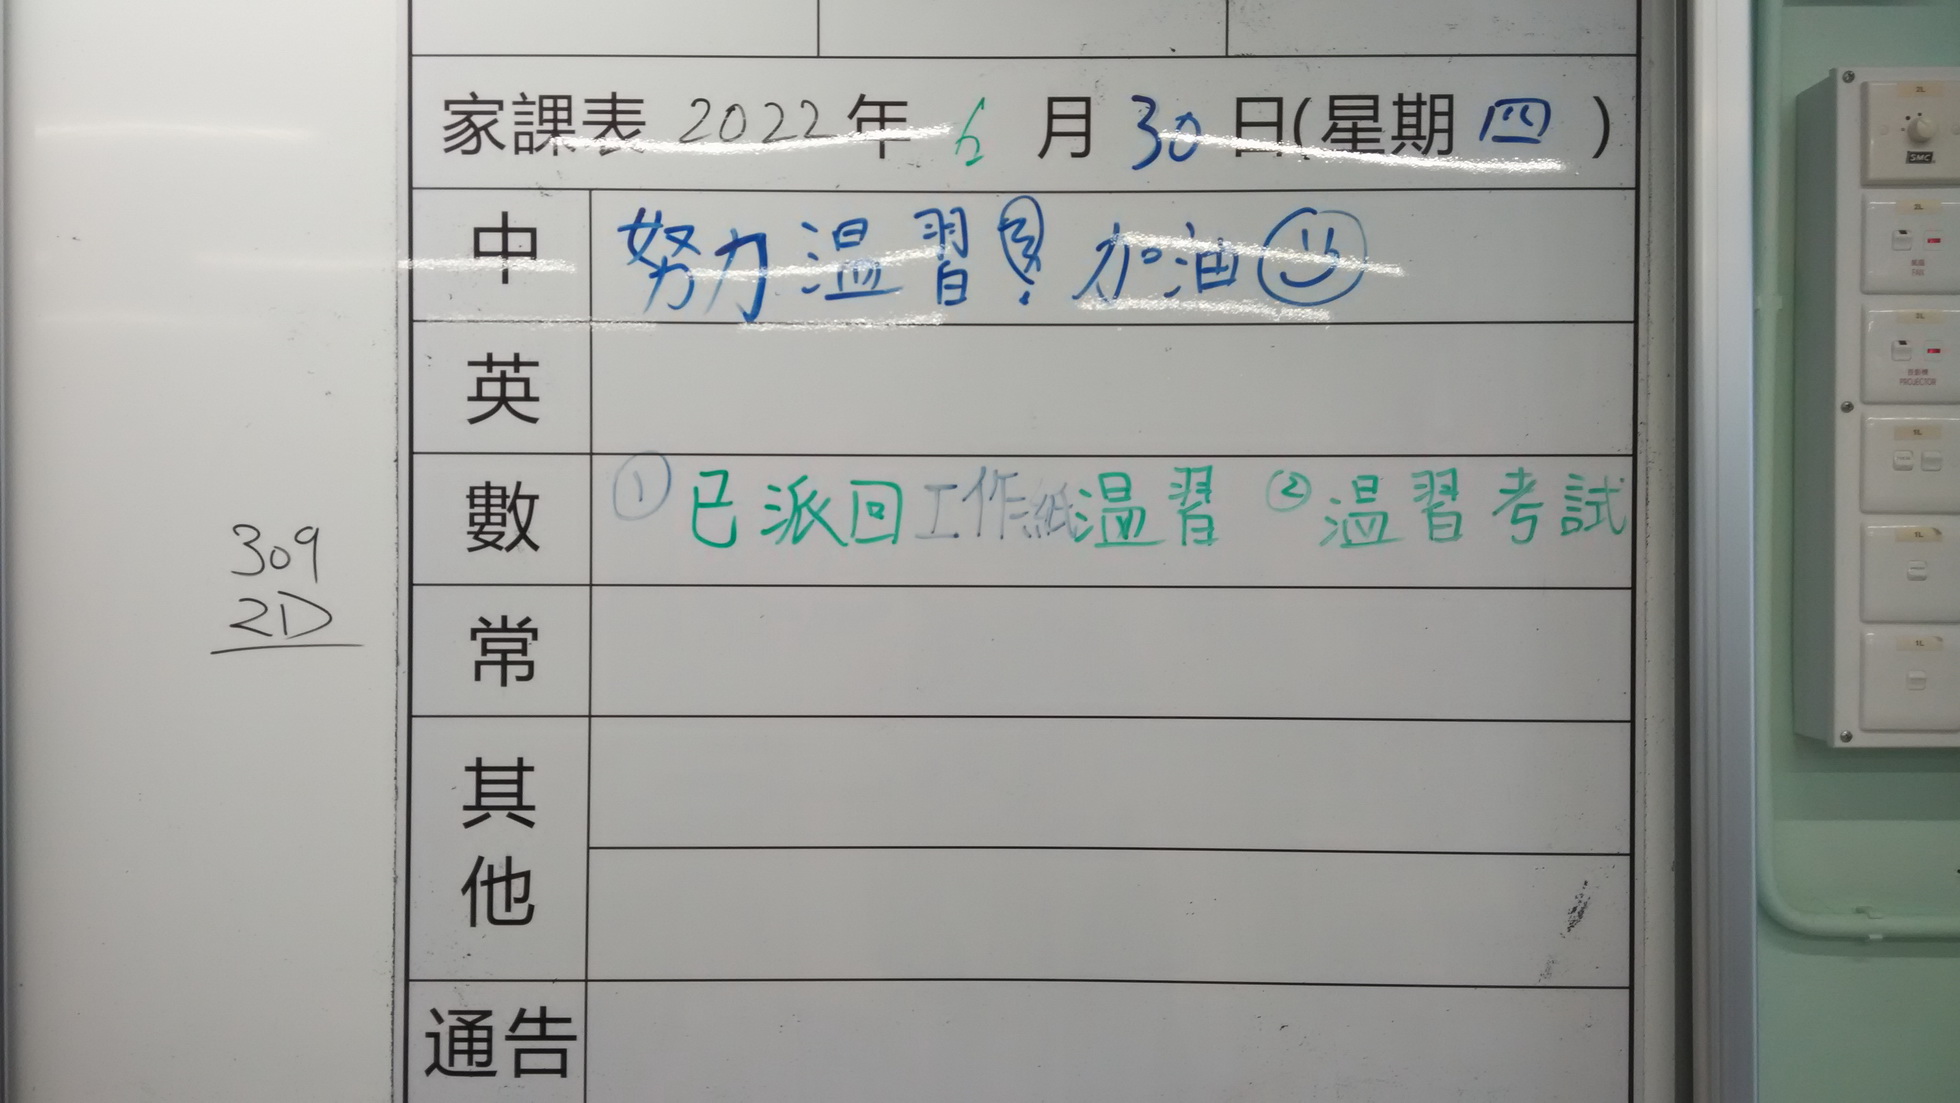 家課表 2022年 6月 30日(星期四)
中 努力溫習! 加油
英
數 ①已派回工作紙溫習 ②溫習考試
常
309
2D
其他
通告
SMC
FAN
PROJECTOR